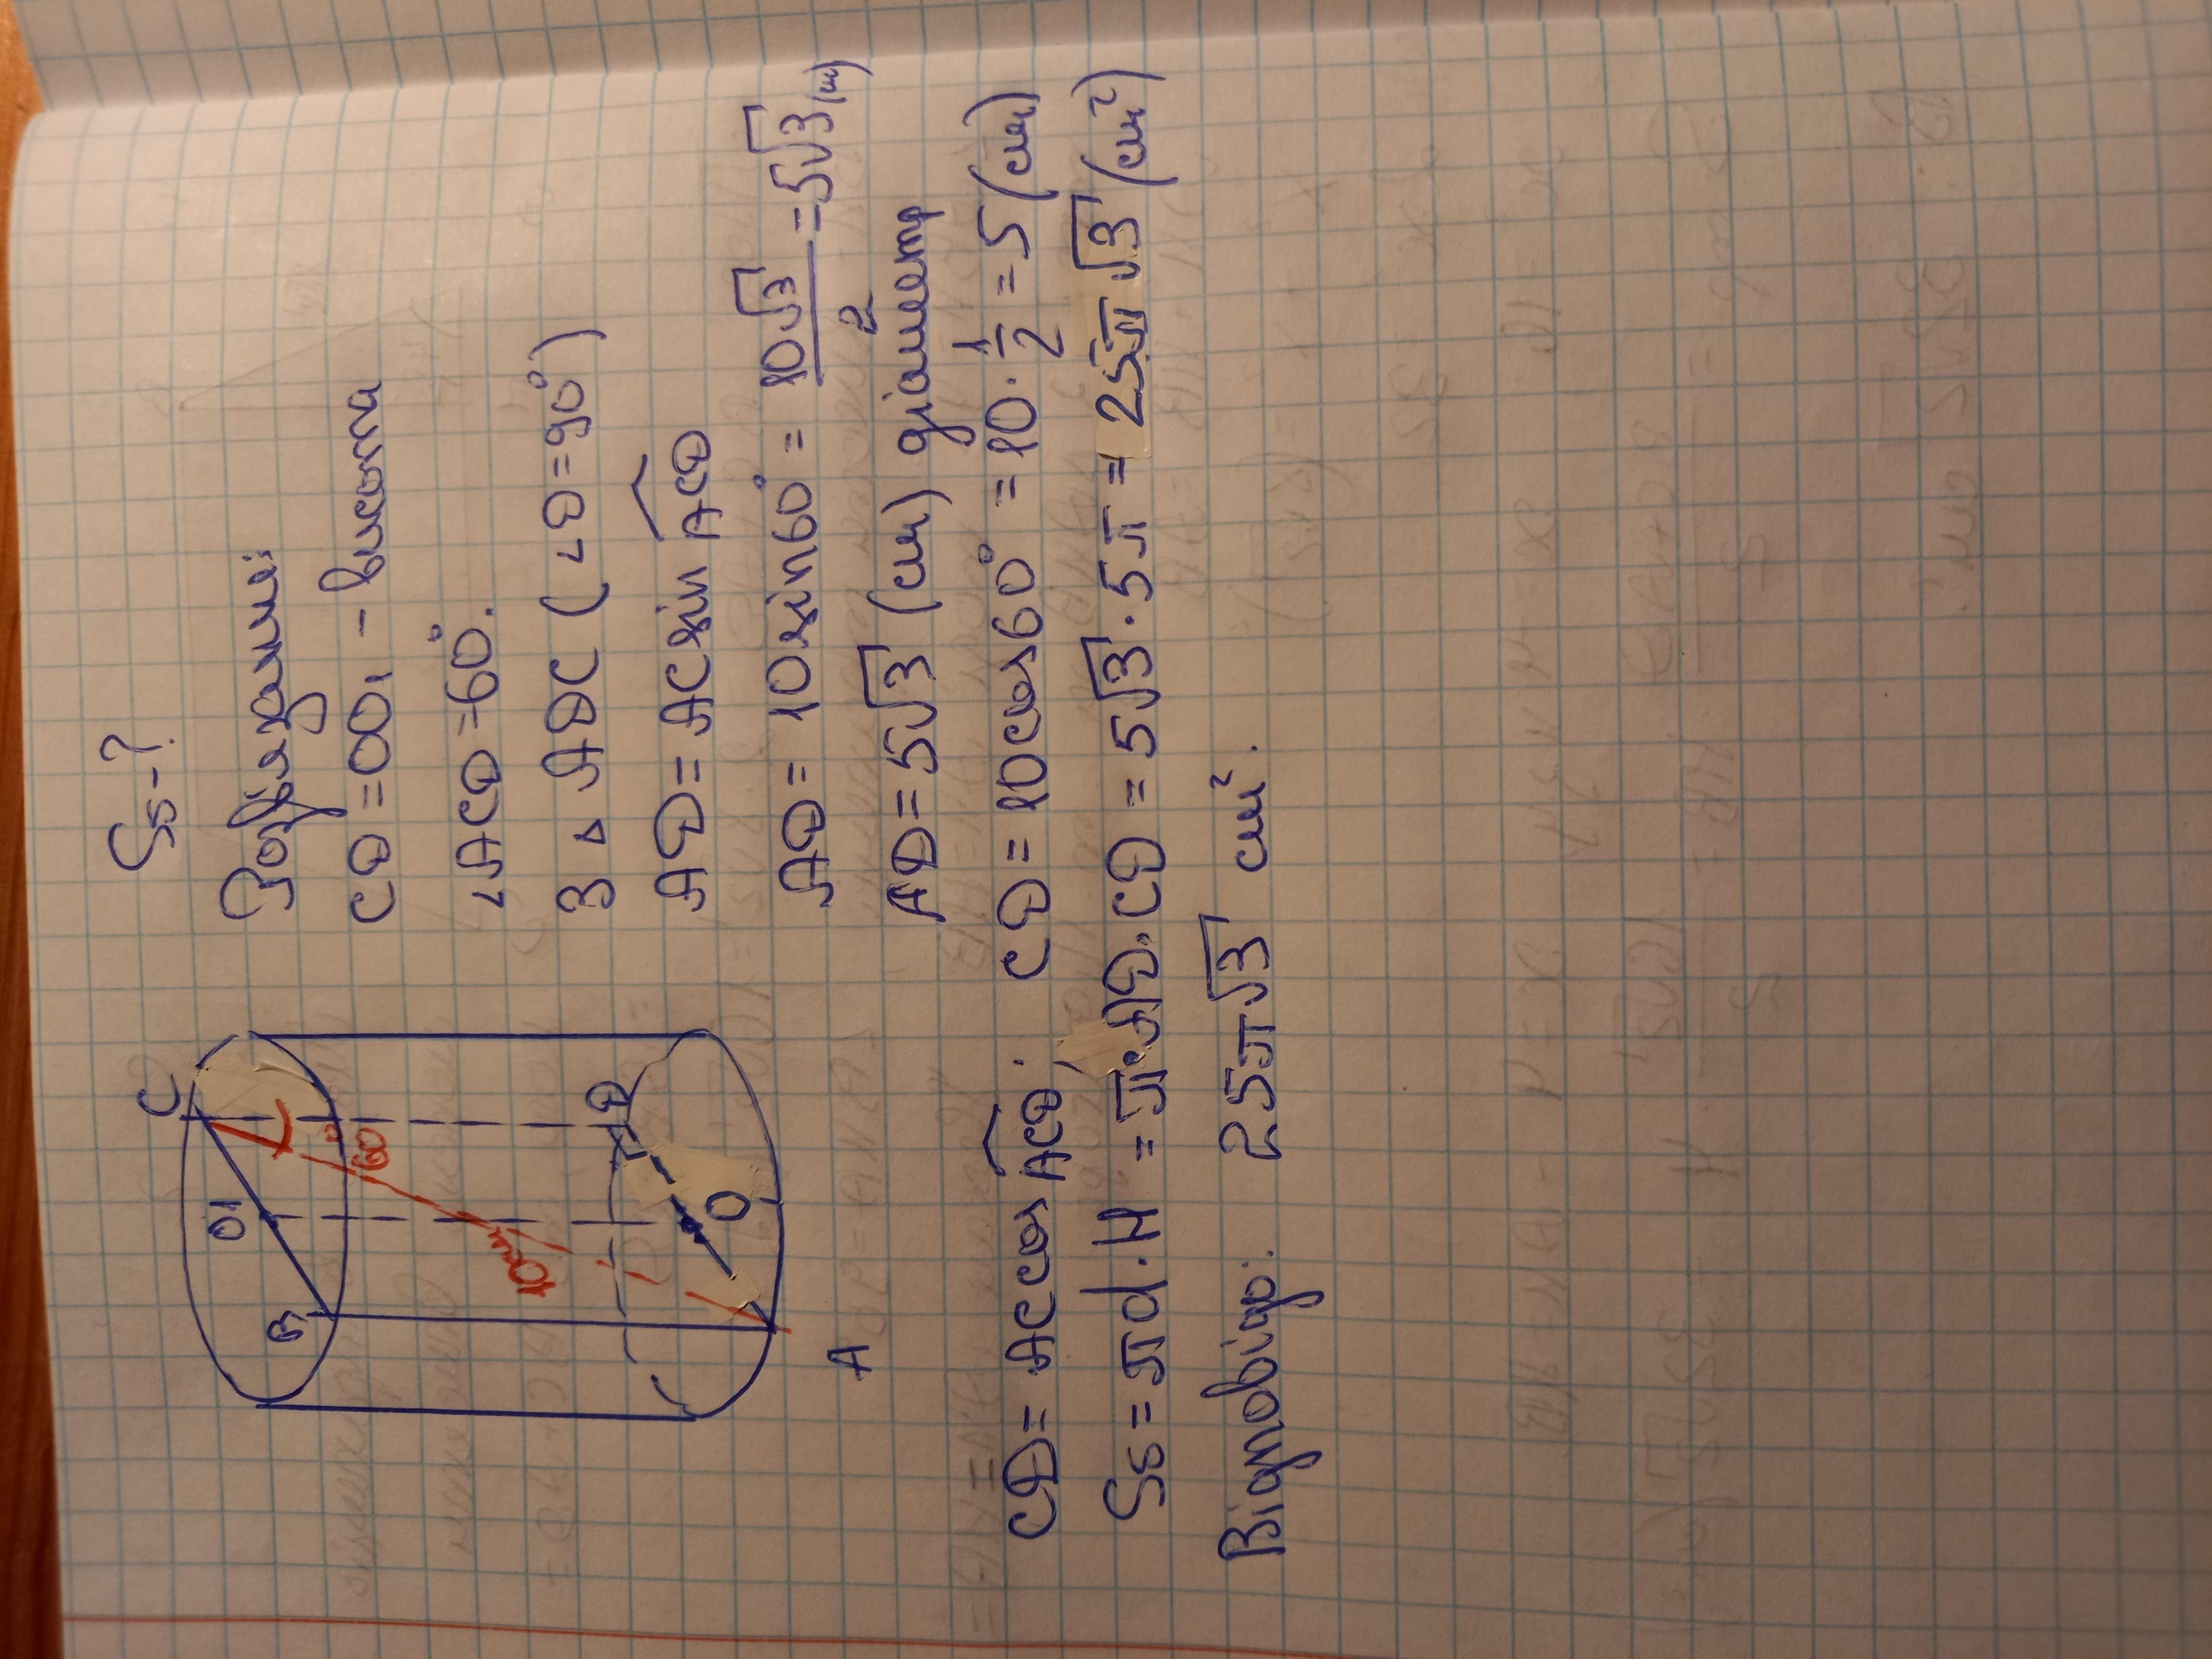 Sб-?
Розв'язання:
CD = OO₁ - висота
∠ACD = 60°.
З △ ADC (∠D = 90°)
AD = AC sin ACD
AD = 10 sin 60° = 10√3/2 = 5√3 (см)
AD = 5√3 (см) діаметр
CD = AC cos ACD. CD = 10 cos 60° = 10 · 1/2 = 5 (см)
Sб = πd · H = π · AD · CD = 5√3 · 5π = 25π√3 (см²)
Відповідь: 25π√3 см².
C
O1
B
60°
10см
D
O
A